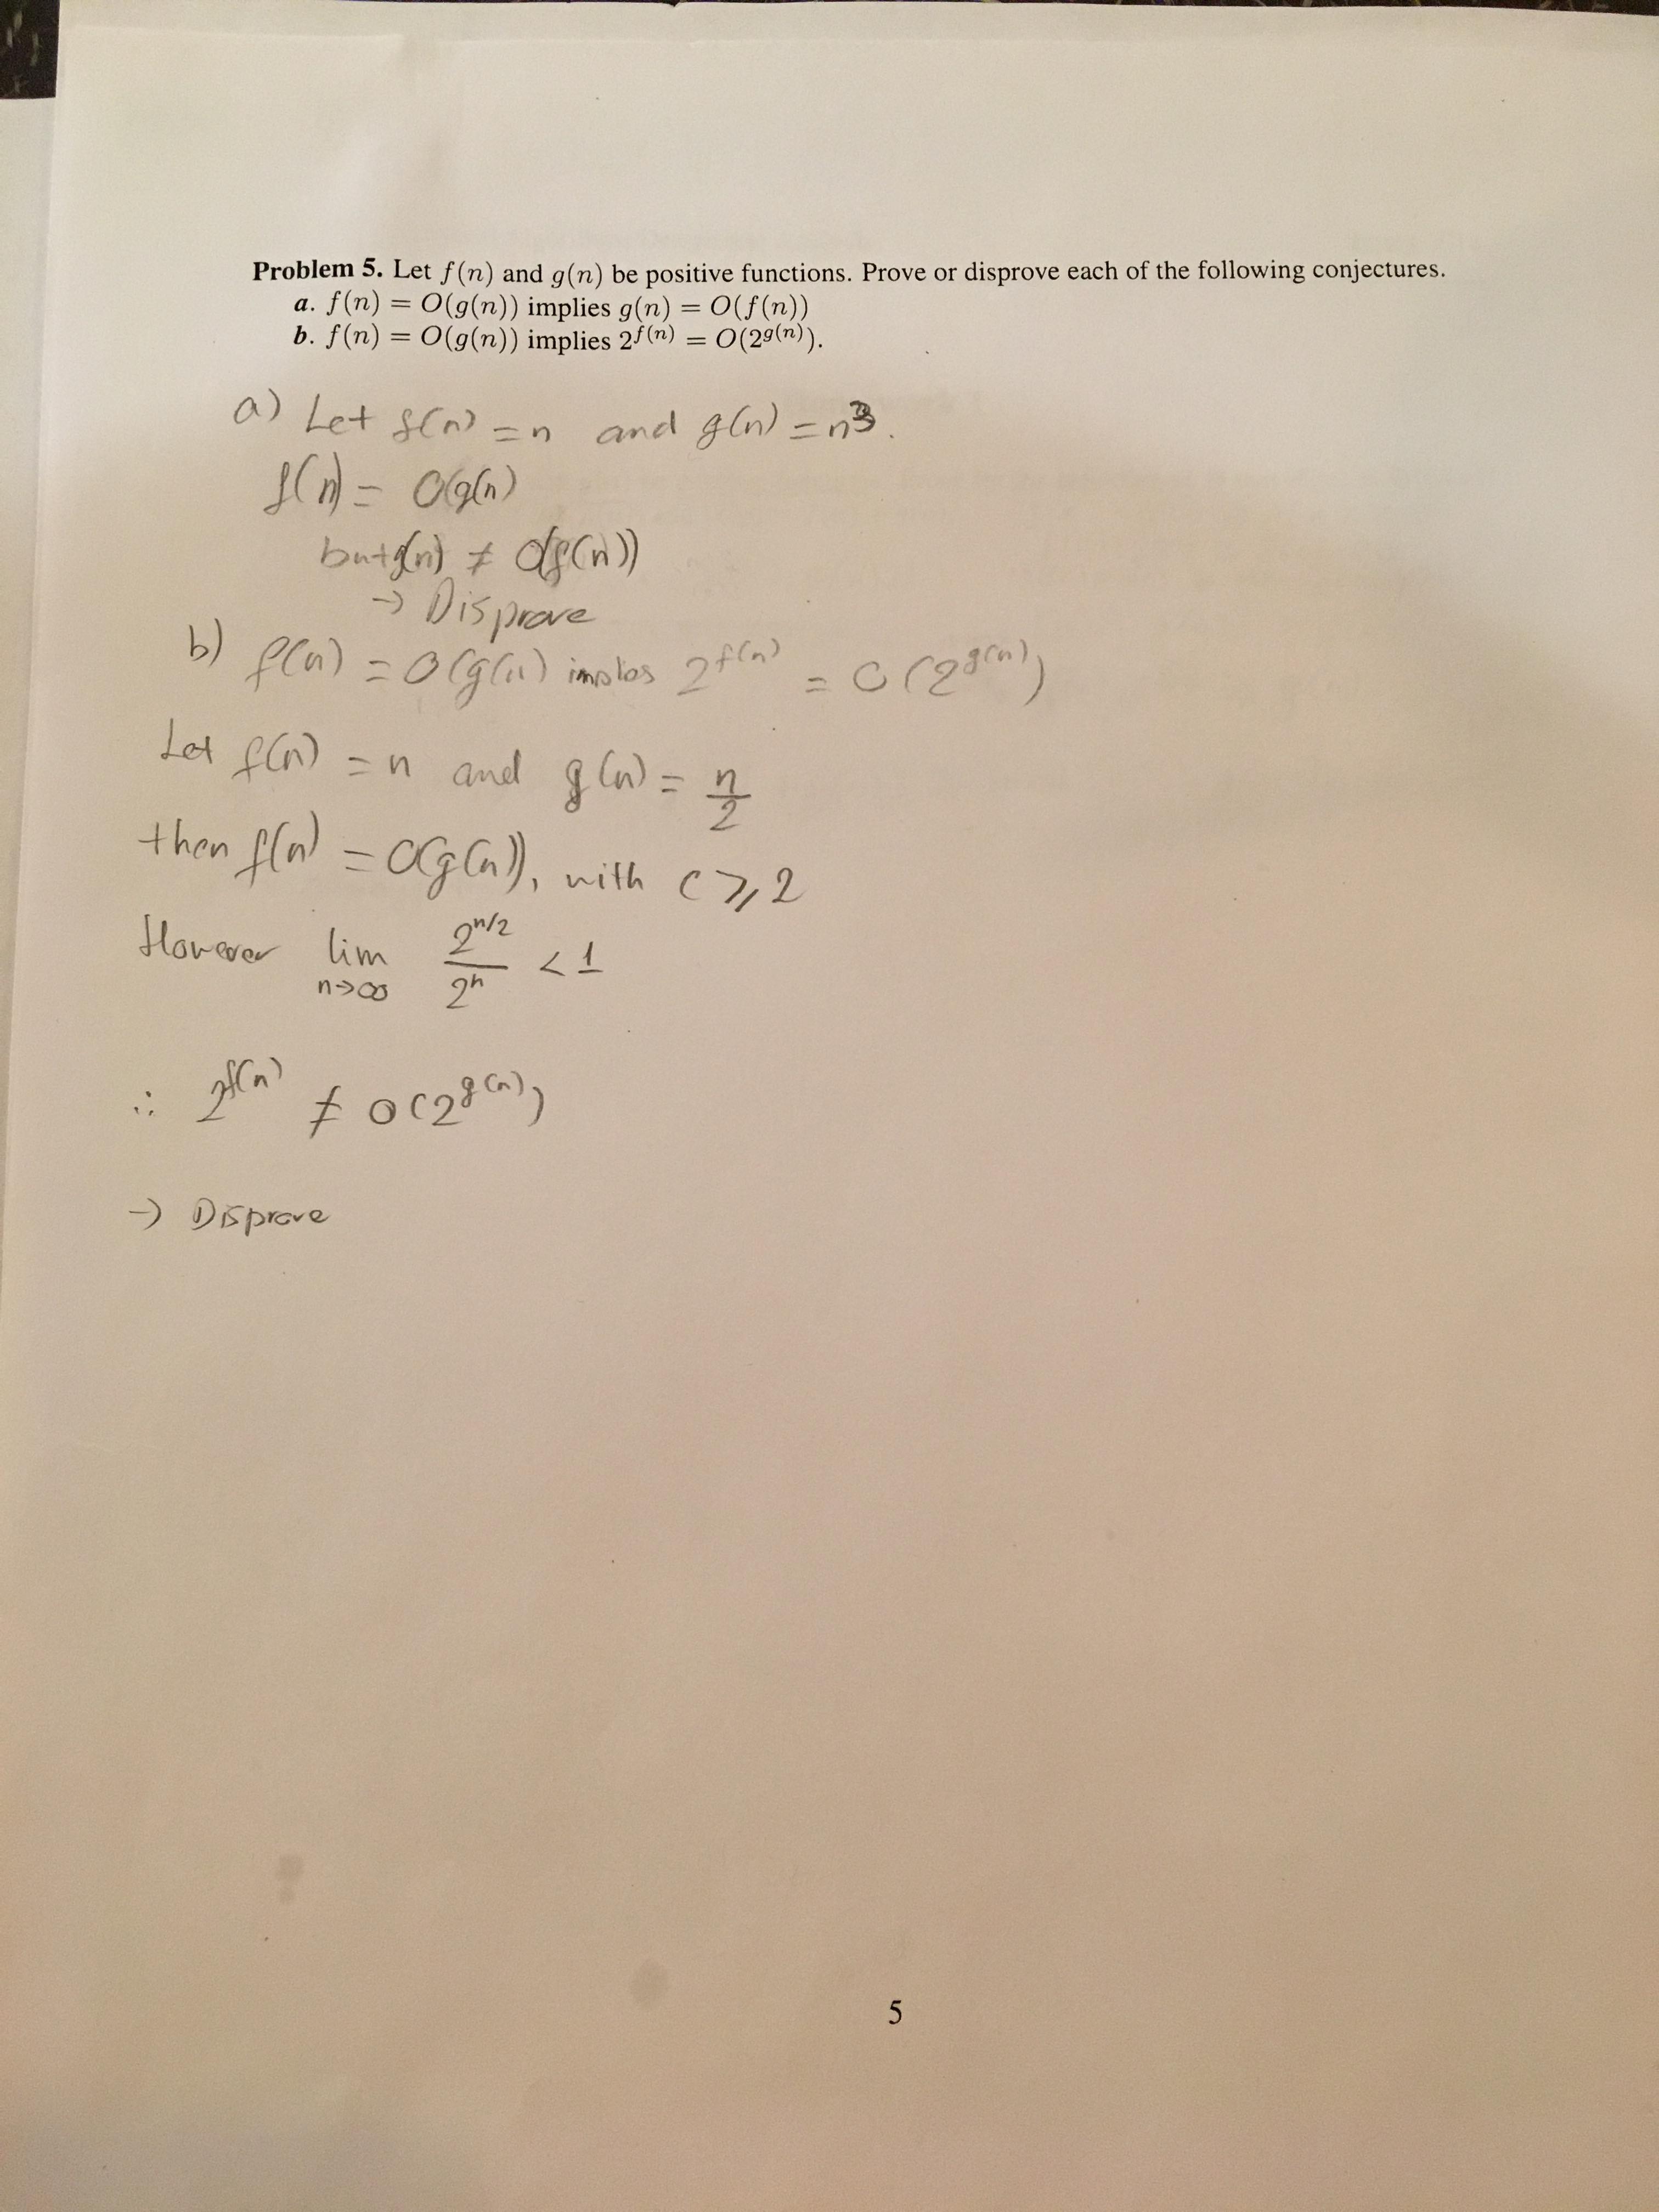 Problem 5. Let f(n) and g(n) be positive functions. Prove or disprove each of the following conjectures.
a. f(n) = O(g(n)) implies g(n) = O(f(n))
b. f(n) = O(g(n)) implies 2^f(n) = O(2^g(n)).
a) Let f(n) = n and g(n) = n^3.
f(n) = O(g(n)
but g(n) ≠ O(f(n))
→ Disprove
b) f(n) = O(g(n) imples 2^f(n) = O(2^g(n))
Let f(n) = n and g(n) = n/2
then f(n) = O(g(n)), with c ⩾ 2
However lim n→∞ 2^n/2 / 2^n < 1
∴ 2^f(n) ≠ O(2^g(n))
→ Disprove
5